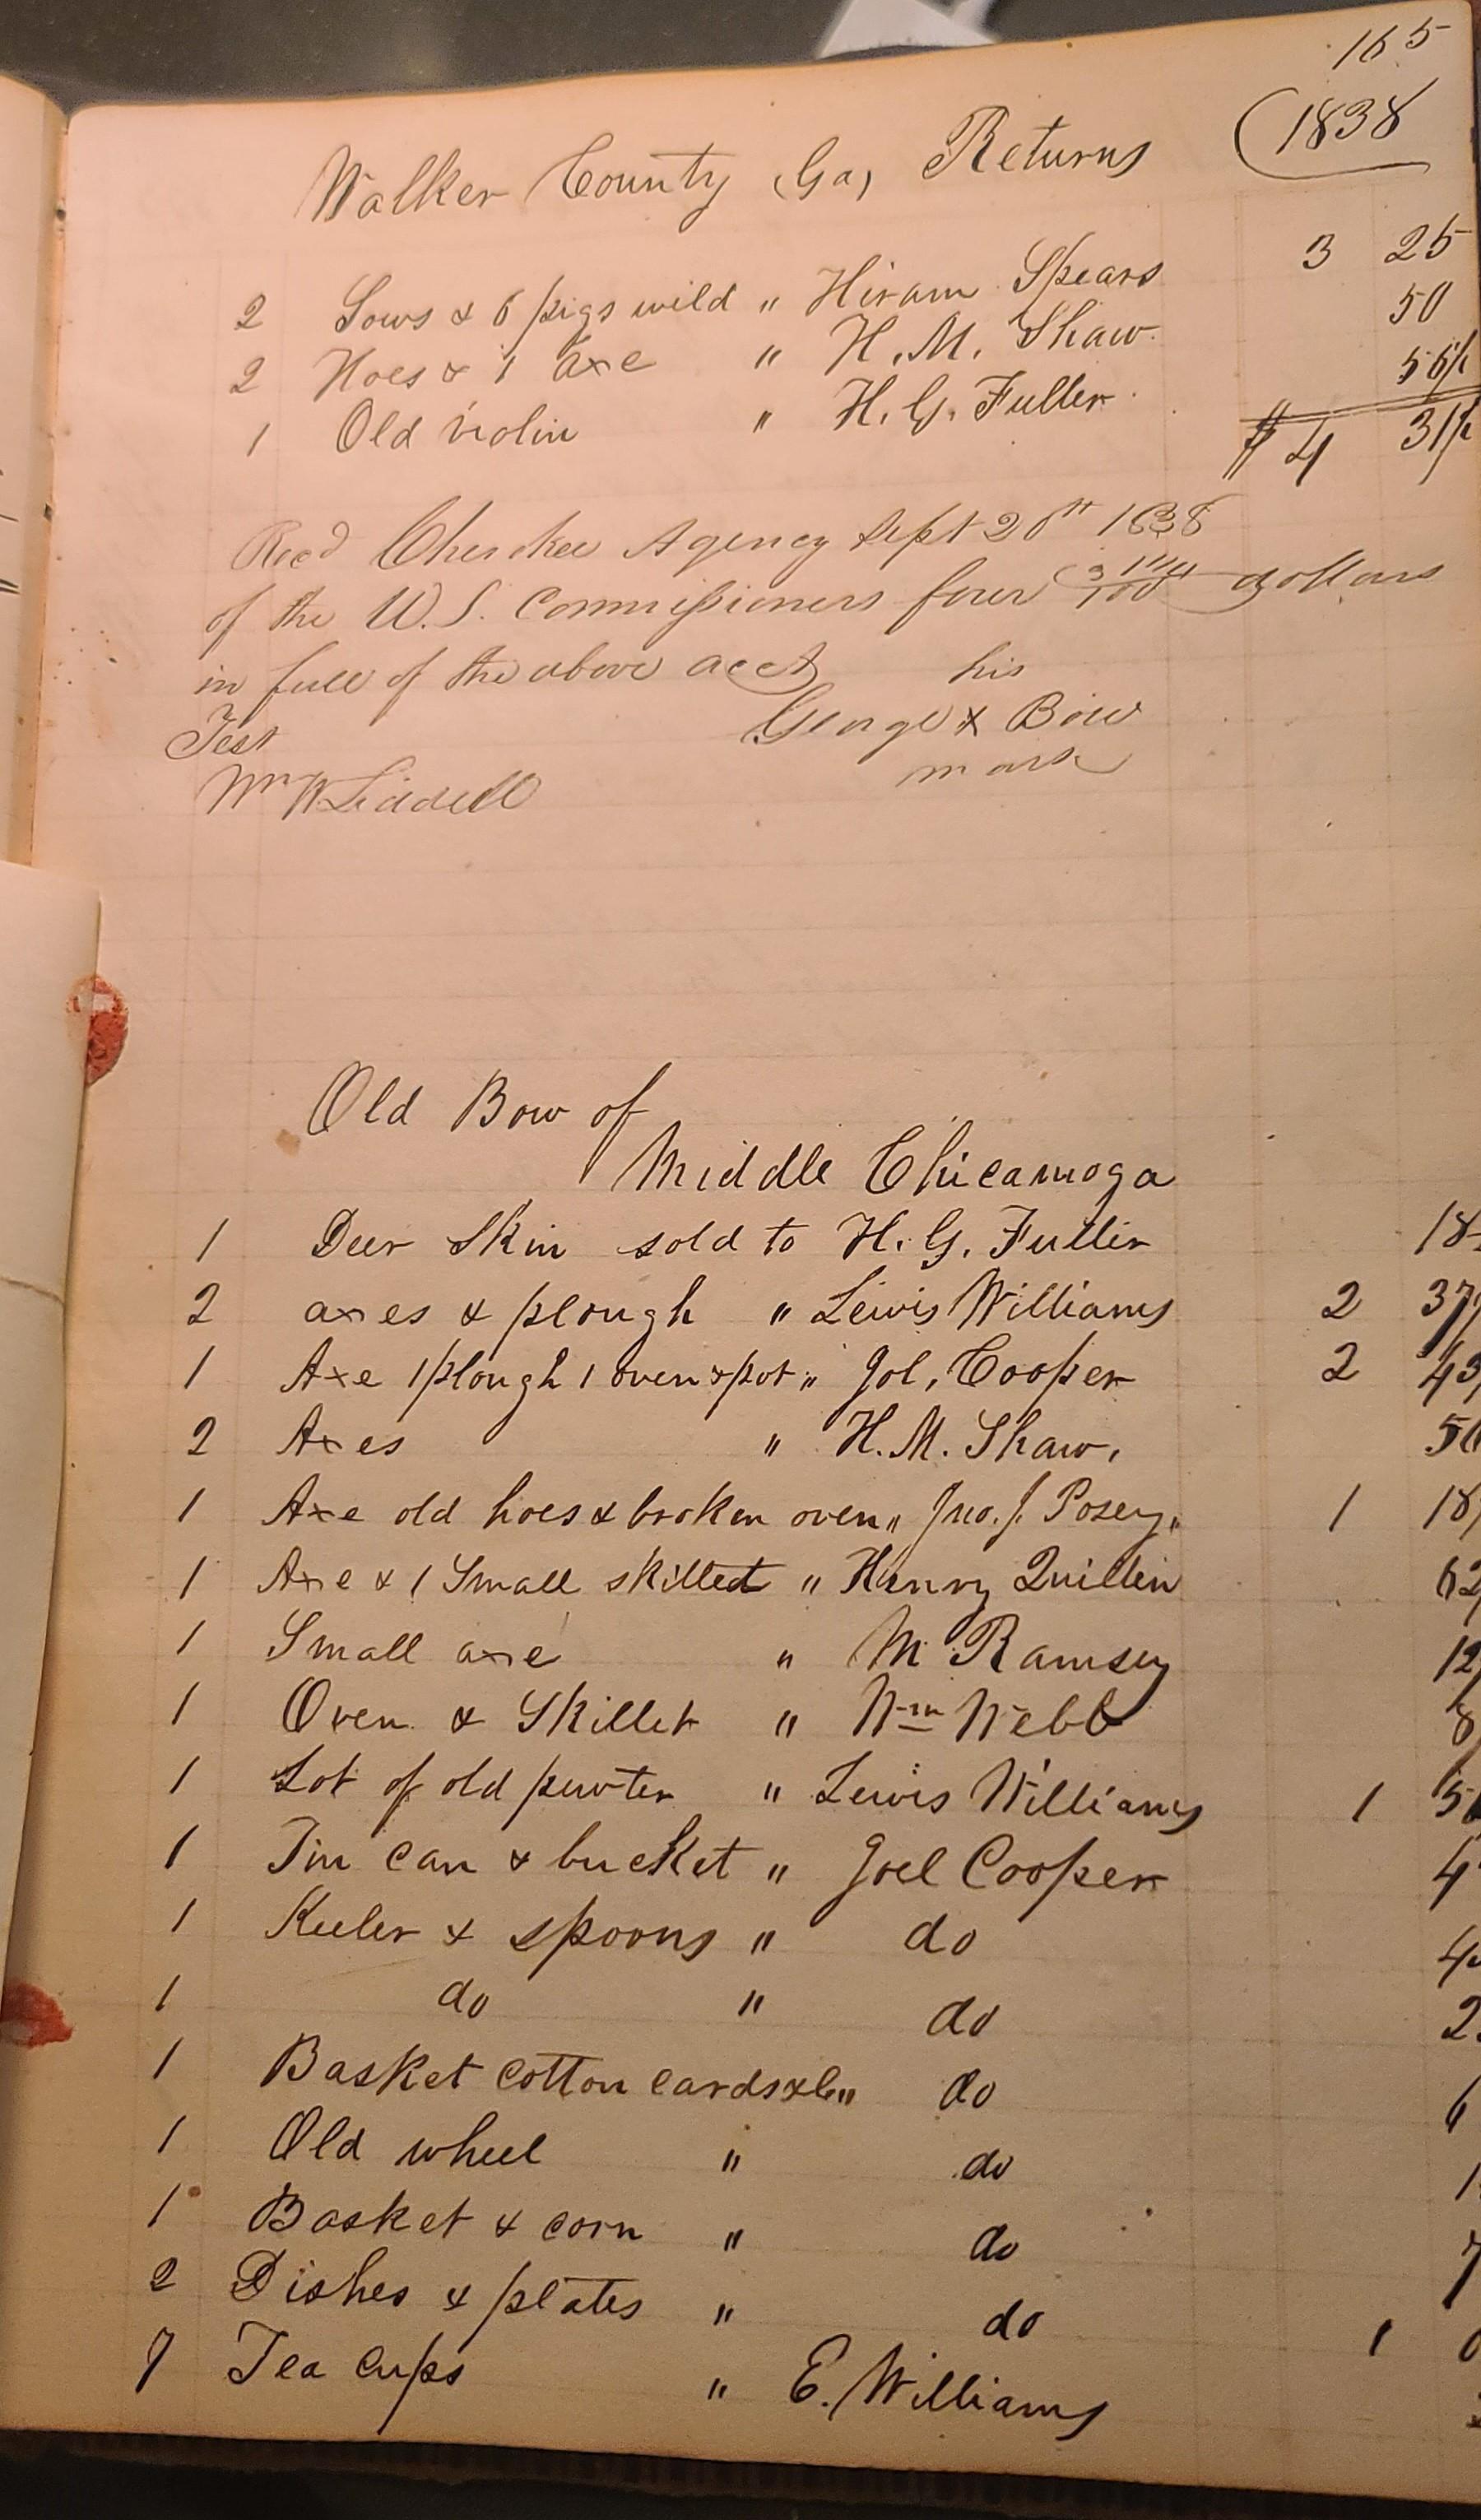 165
Walker County (Ga) Returns (1838
2 Sows & 6 pigs wild " Hiram Spears 3 25
2 Hoes & 1 axe " H. M. Shaw 50
1 Old violin " H. G. Fuller 56½
$ 4 31½
Recd Cherokee Agency Sept 26th 1838
of the U. S. Commissioners four dollars
in full of the above acct his
Test George x Bow
Wm W Liddell mark
Old Bow of
Middle Chicamoga
1 Deer Skin sold to H. G. Fuller 18
2 axes & plough " Lewis Williams 2 37
1 Axe 1 plough 1 oven & pot " Jol, Cooper 2 43
2 Axes " H. M. Shaw, 50
1 Axe old hoes & broken oven " Jno. J. Posey " 1 18
1 Axe & 1 Small skilled " Henry Quillin 62
1 Small axe " M Ramsey 12
1 Oven & Skillet " Wm Webb 8
1 Lot of old pewter " Lewis Williams 1 5
1 Tin can & bucket " Joel Cooper 4
1 Keeler & spoons " do 4
1 do " do 2
1 Basket cotton cards &c " do 6
1 Old wheel " do 1
1 Basket & corn " do 7
2 Dishes & plates " do
7 Tea cups " E. Williams 1